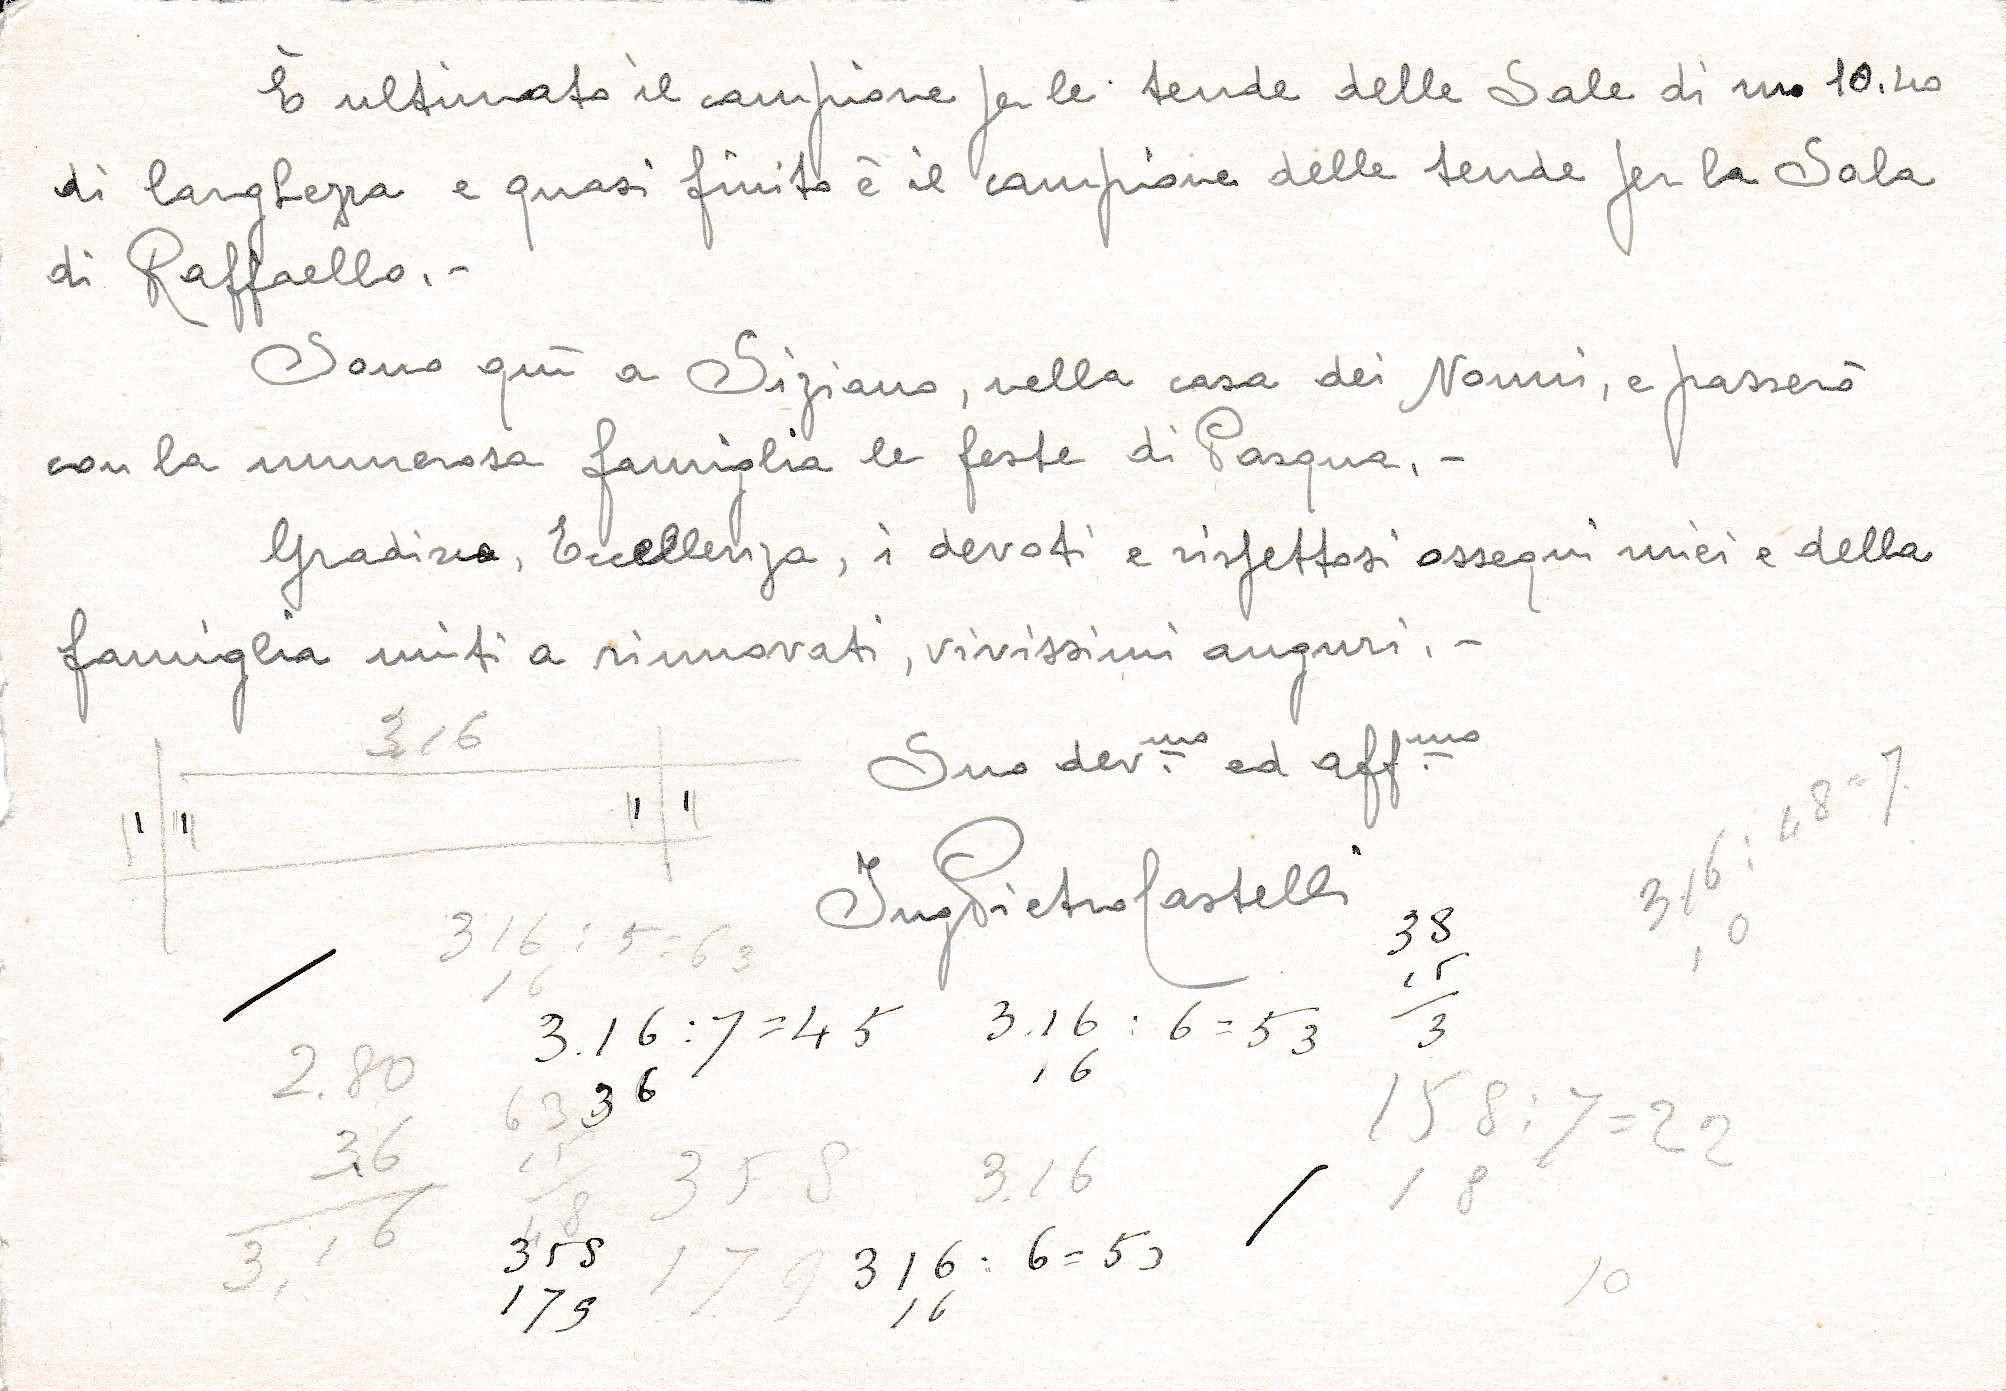 È ultimato il campione per le tende delle Sale di m 10.40
di larghezza e quasi finito è il campione delle tende per la Sala
di Raffaello. -
Sono quì a Siziano, nella casa dei Nonni, e passerò
con la numerosa famiglia le feste di Pasqua. -
Gradisca, Eccellenza, i devoti e rispettosi ossequi miei e della
famiglia uniti a rinnovati, vivissimi auguri. -
3,16
Suo dev.mo ed aff.mo
Ing Pietro Castelli
316 : 48 = 7
10
316 : 5 = 63
16
38
15
3
3.16 : 7 = 45 3.16 : 6 = 53
36 16
2.80
36
3,16
63
15
48
358 3.16
158 : 7 = 22
18
358 179 316 : 6 = 53
179 16
10